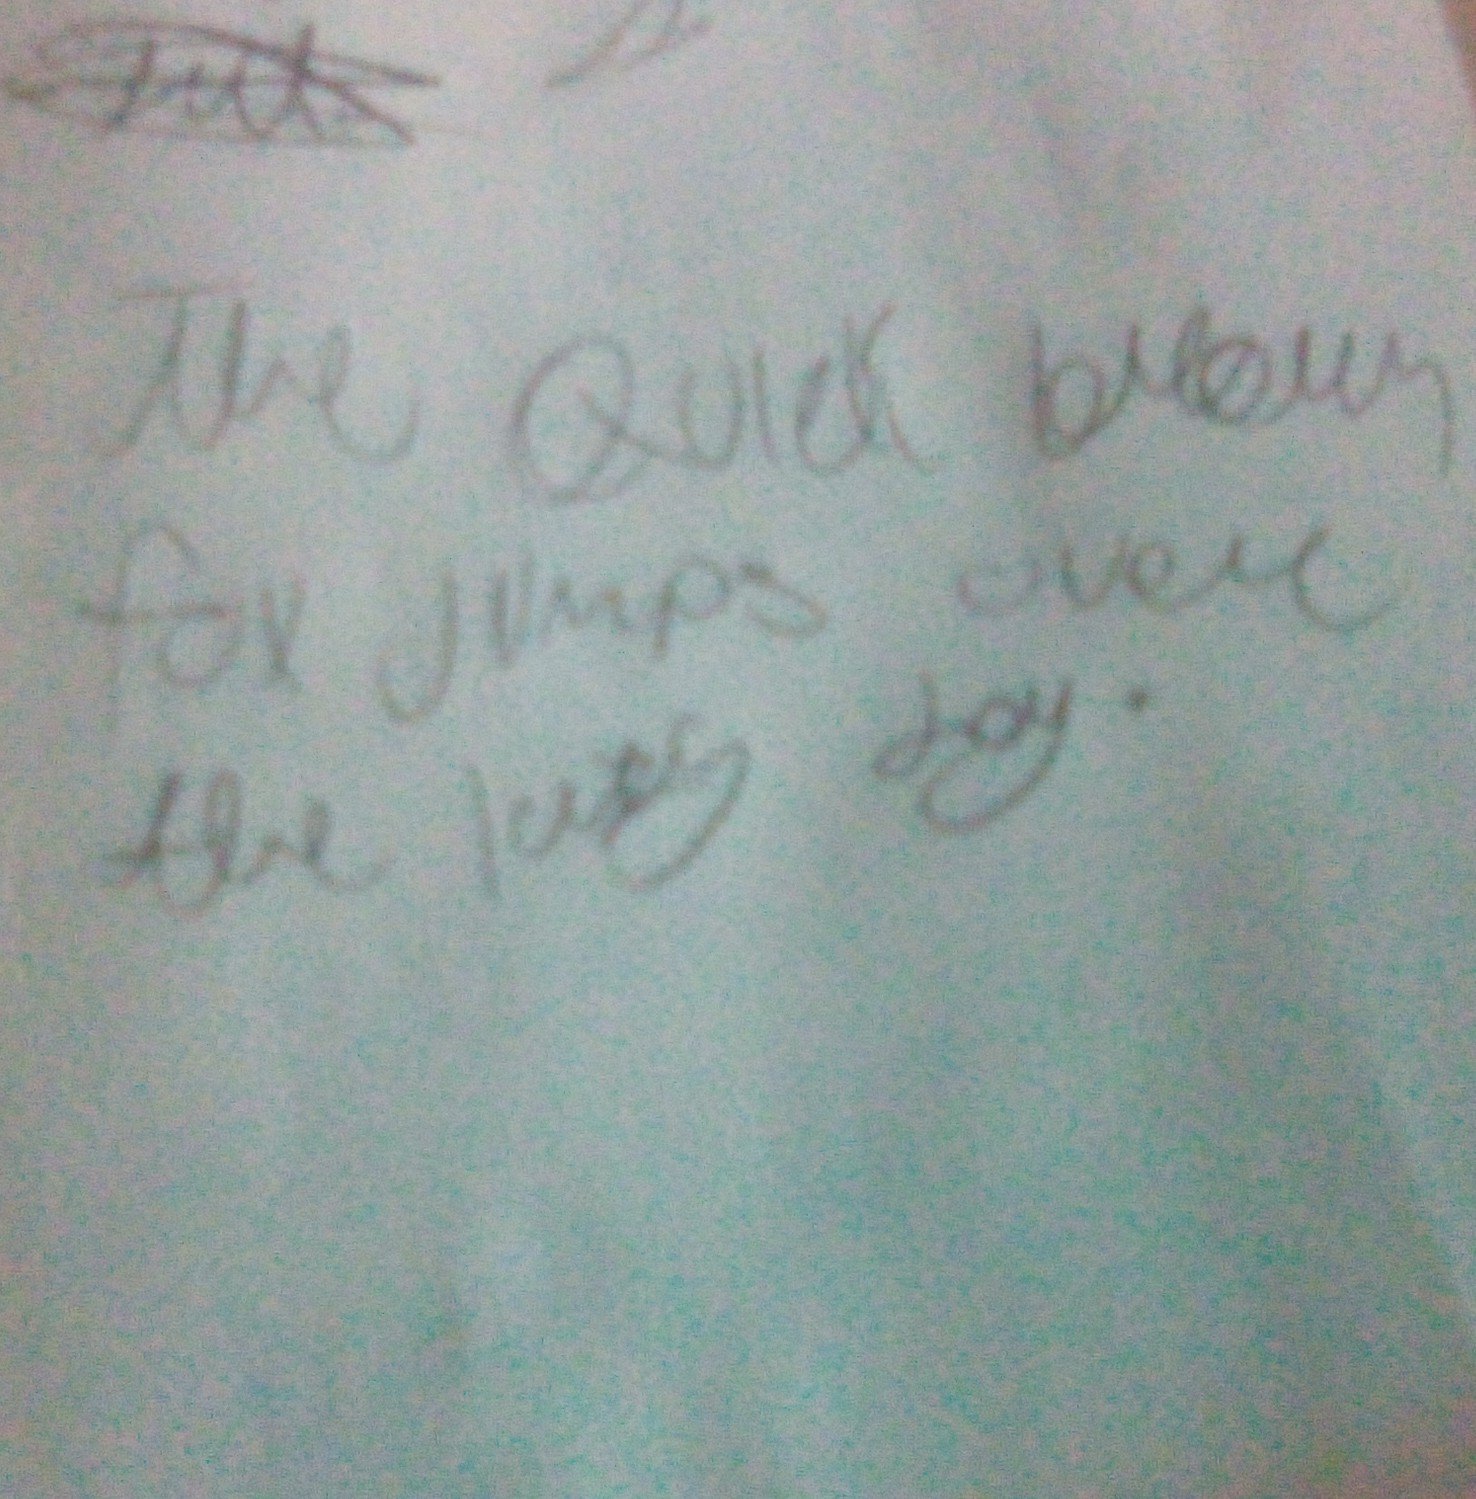 The Quick brown
fox jumps over
the lazy dog.